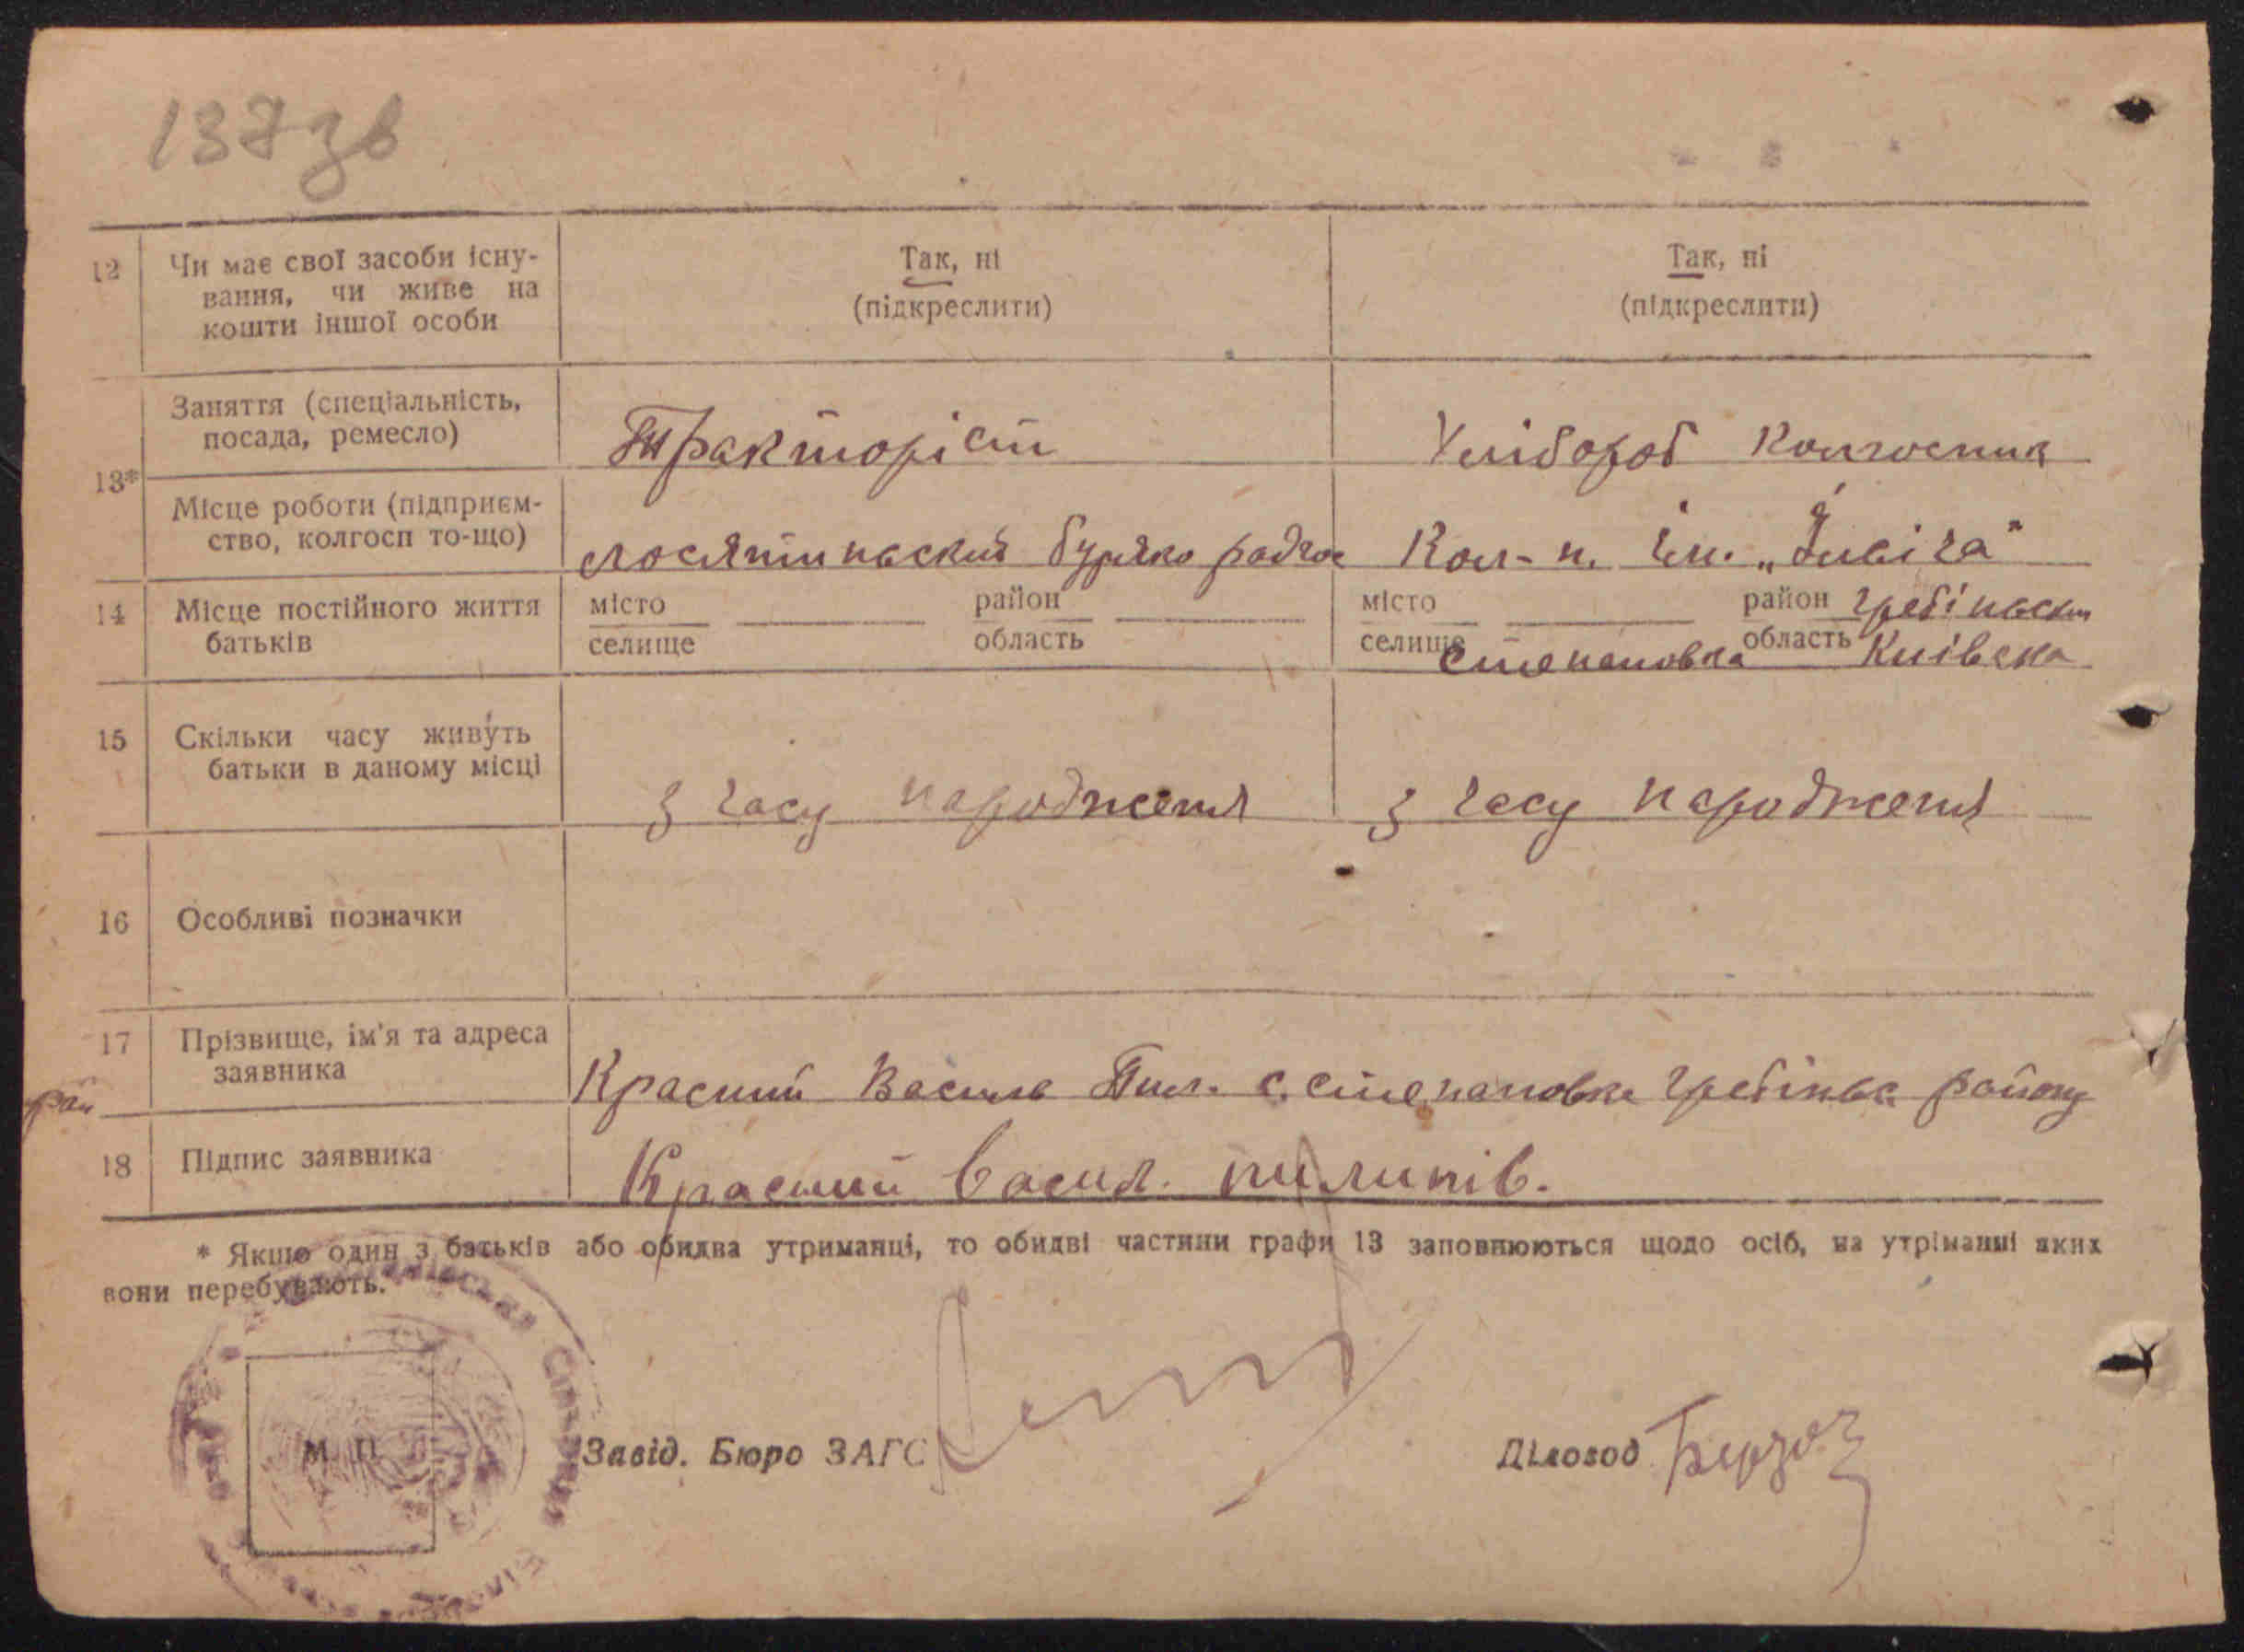 137 зв
12 Чи має свої засоби існу-
вання, чи живе на
кошти іншої особи
Так, ні
(підкреслити)
Так, ні
(підкреслити)
13*
Заняття (спеціальність,
посада, ремесло)
Тракторіст
Хлібороб Колгоспник
Місце роботи (підприєм-
ство, колгосп то-що)
Лосятинський буряко радгос
Кол-п. ім.
14 Місце постійного життя
батьків
місто
селище
район
область
місто
селище Степановка
район Гребіньськи
область Київска
15 Скільки часу живуть
батьки в даному місці
З часу народження
З часу народження
16 Особливі позначки
17 Прізвище, ім'я та адреса
заявника
Красний Василь Пил. с. Степановка Гребіньс району
рай
18 Підпис заявника
Красний Васил. пилипів.
* Якщо один з батьків або обидва утриманці, то обидві частини графи 13 заповнюються щодо осіб, на утріманні яких
вони перебувають.
М. П.
Завід. Бюро ЗАГС
Діловод